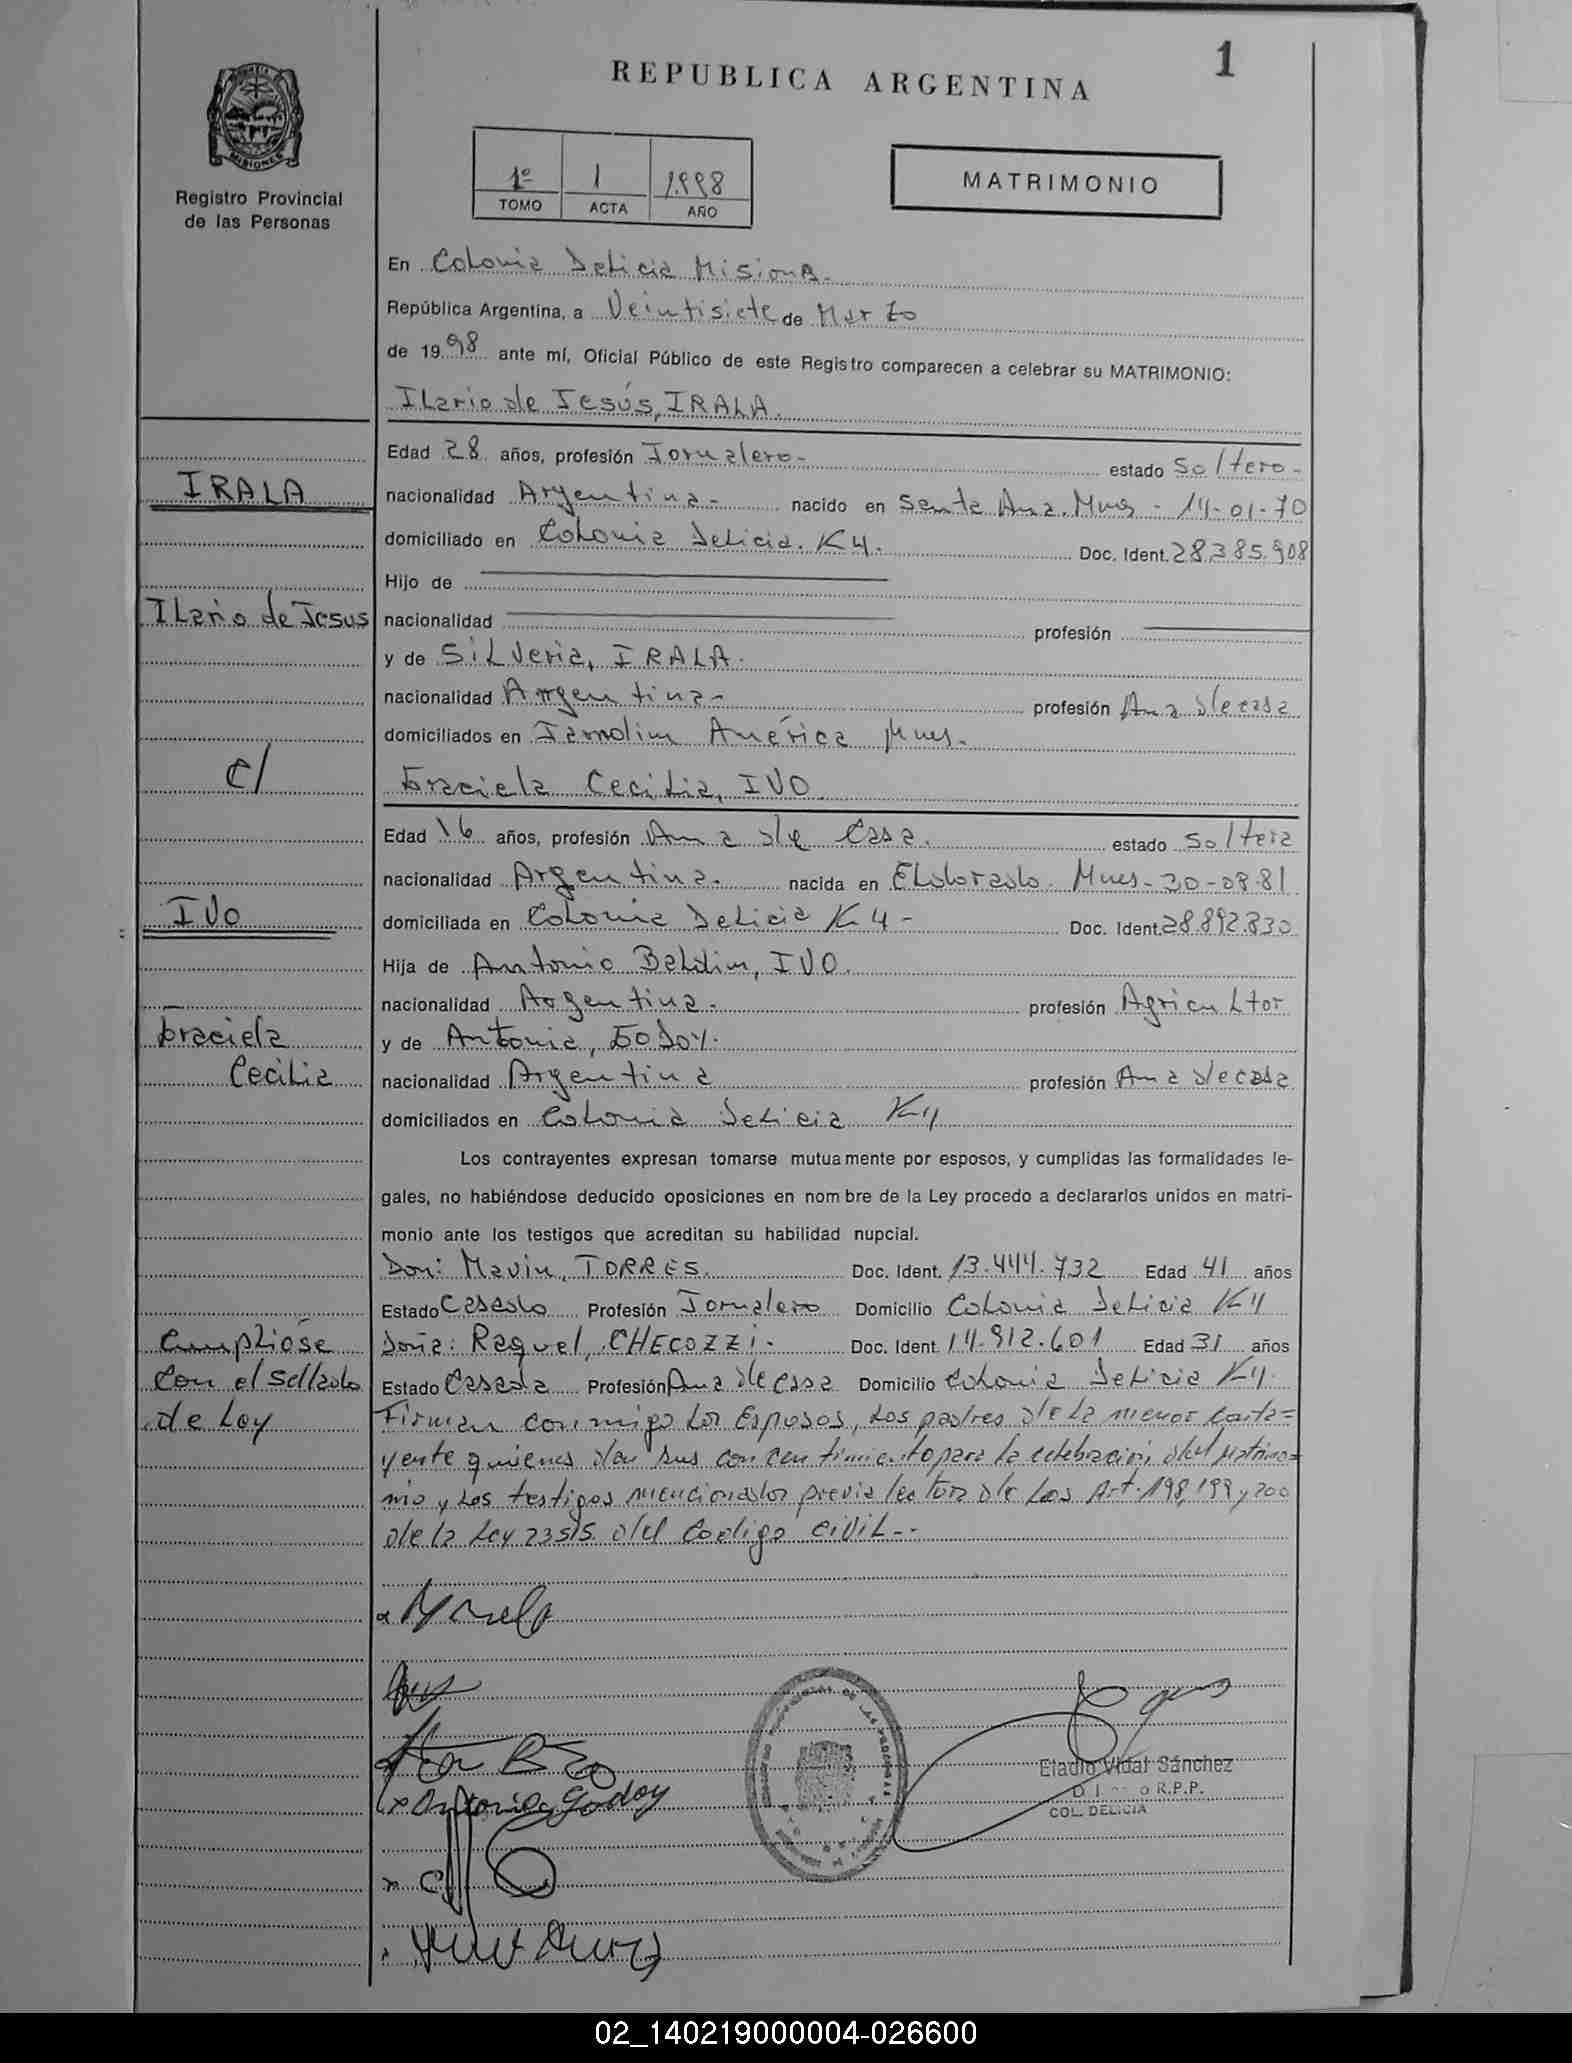 1
REPUBLICA ARGENTINA
MISIONES
Registro Provincial
de las Personas
1º 1 1.998
TOMO ACTA AÑO
MATRIMONIO
En Colonia Delicia Misiones.
República Argentina, a Veintisiete de Marzo
de 1998 ante mí, Oficial Público de este Registro comparecen a celebrar su MATRIMONIO:
ILario de Jesús, IRALA.
Edad 28 años, profesión Jornalero- estado Soltero-
IRALA
nacionalidad Argentina- nacido en Santa Ana. Mnes - 14-01-70
domiciliado en Colonia Delicia. K4. Doc. Ident. 28.385.908
Hijo de
ILario de Jesus
nacionalidad profesión
y de SiLveria, IRALA.
nacionalidad Argentina- profesión Ama de casa
domiciliados en Jarndim América Mnes.
c/
Graciela Cecilia, IVO.
Edad 16 años, profesión Ama de Casa. estado Soltera
nacionalidad Argentina. nacida en Eldorado. Mnes-30-08-81
IVO
domiciliada en Colonia Delicia K4- Doc. Ident. 28.892.830
Hija de Antonio Beldim, IVO.
nacionalidad Argentina. profesión AgricuLtor
Graciela
y de Antonia, GoDoy.
Cecilia
nacionalidad Argentina profesión Ama de casa
domiciliados en Colonia Delicia K4
Los contrayentes expresan tomarse mutuamente por esposos, y cumplidas las formalidades le-
gales, no habiéndose deducido oposiciones en nombre de la Ley procedo a declararlos unidos en matri-
monio ante los testigos que acreditan su habilidad nupcial.
Don: Mavin, TORRES. Doc. Ident. 13.444.732 Edad 41 años
Estado Casado Profesión Jornalero Domicilio Colonia Delicia K4
Cumplióse
Doña: Raquel, CHECOZZi. Doc. Ident. 14.912.601 Edad 31 años
con el sellado
Estado Casada Profesión Ama de casa Domicilio Colonia Delicia K4.
de Ley
Firman conmigo los Esposos, Los padres de La menor Contra=
yente quienes dan sus concentimiento para la celebración, del Matrimo=
nio y Los testigos mencionados previa lectura de Los Art. 198, 199 y 200
de la Ley 23515 del Codigo CiViL-.
x Antonia Godoy
Eladio Vidal Sánchez
R.P.P.
COL. DELICIA
02_140219000004-026600